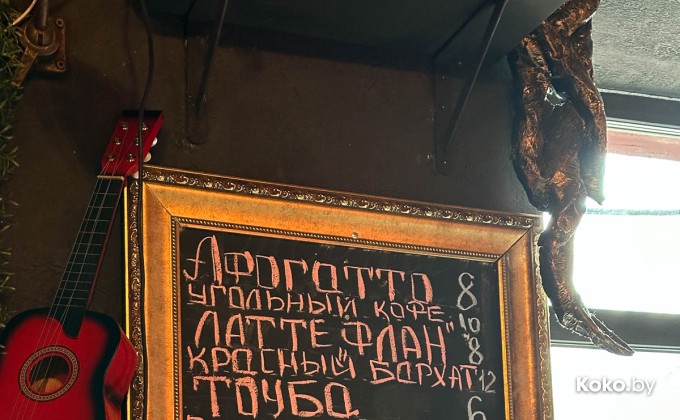 Афогатто 8
угольный кофе 10
Латте "Флан" 8
Красный бархат 12
Тоуба 6
Koko.by